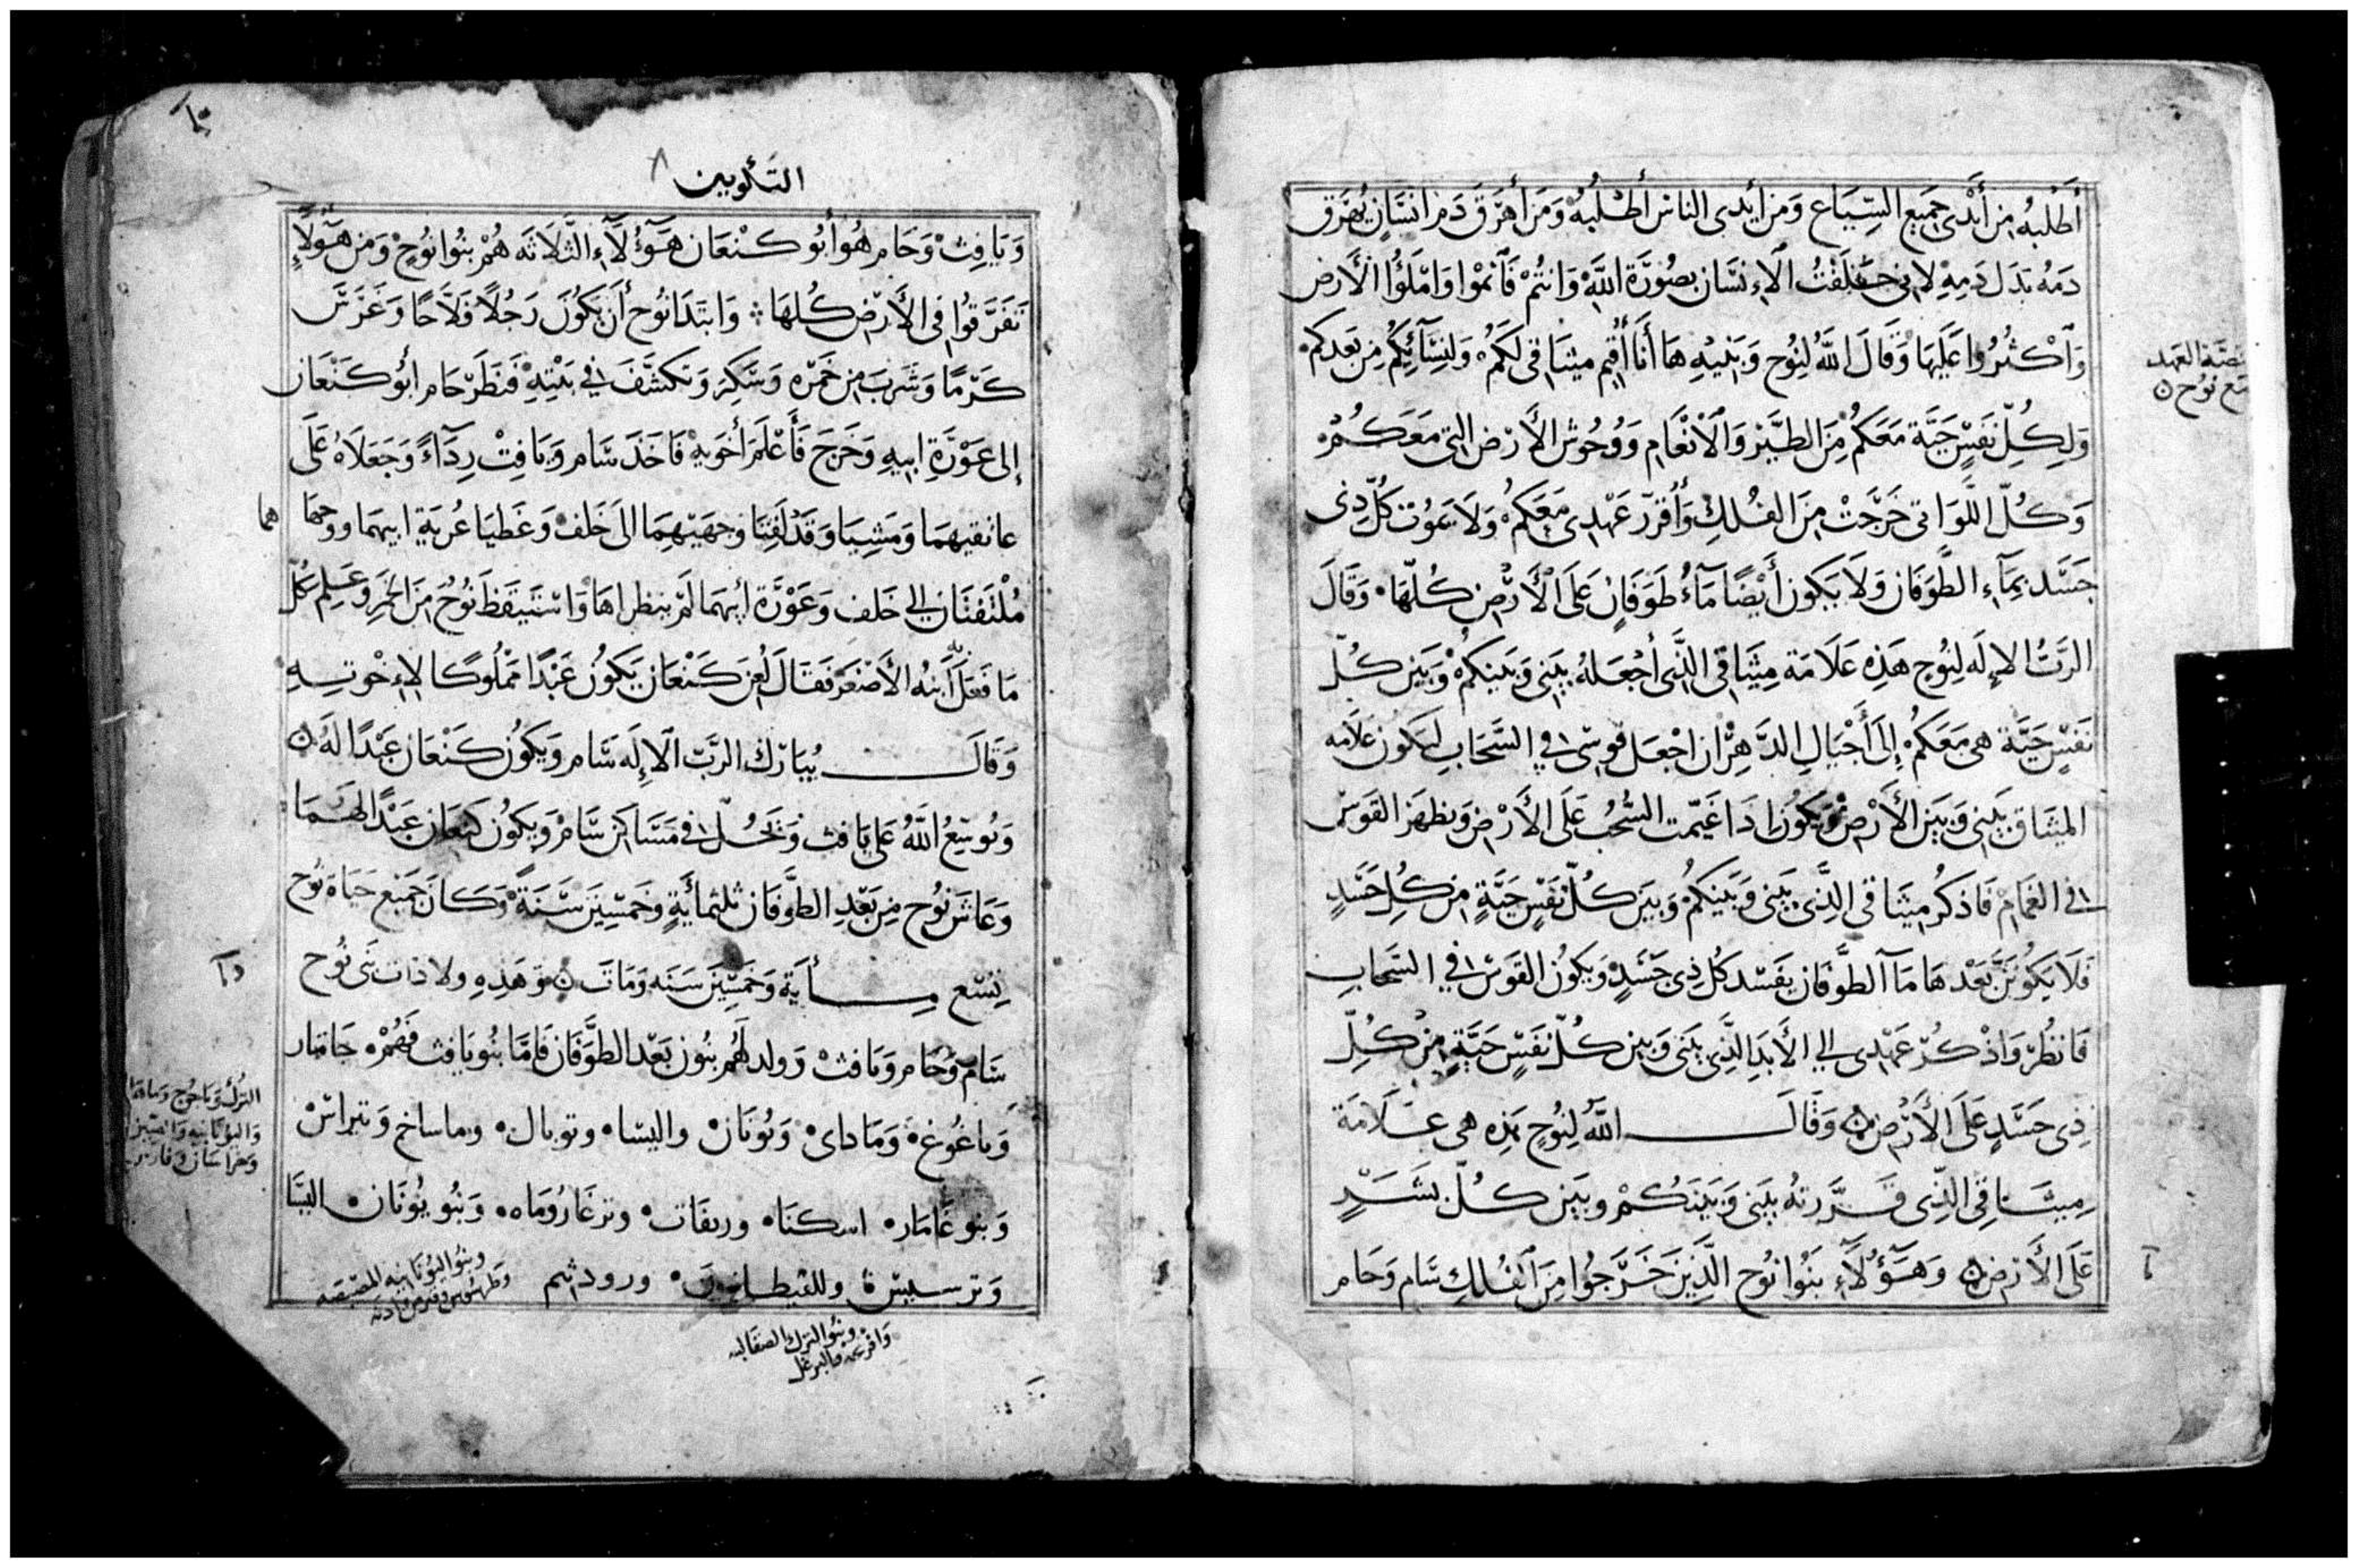 أَطْلبُه من أَيْدى جميع السِّبَاع وَمن أيدى الناس أطْلبُهُ وَمَن أَهْرَقَ دَم انسَانٍ يُهْرَق
دَمُه بَدَل دَمِهِ لإنى خَلَقْتُ الاءنسَان بصُورَة اللَّه وَانتُمْ فَاَنمْوا وَامْلَؤُا الأَرض
وَاَكْثرُوا عَلَيهَا وَقَالَ اللَّهُ لِنوُح وَبَنيْهِ هَا أَنَا أُقيم ميثاقى لَكمُ وَلنسَآئِكُم من بَعَدكم
وَلكِلِّ نَفسٍ حَيَّة مَعَكمُ مِنَ الطَيْر وَالاَنْعَام وَوُحُوش الأَرْض التى مَعَكُمْ
وَكُلّ اللَّوَاتى خَرَجَتْ مِنَ الفُلكِ وَأُقرّر عَهْدِى مَعَكمُ وَلاَ يَموُت كُلّ ذى
جَسَد بمَآءِ الطَّوَفَان وَلاَ يَكون أَيْضًا مَآءُ طَوَفَانٍ عَلَى الأَرْض كُلّهَا وَقَالَ
الرَبُّ الاءِلَه لِنوُح هَذِه عَلاَمَة مِيثَاقى الذَّى أَجْعَلهُ بَيْنى وَبَينكمْ وَبَين كُلّ
نَفسٍ حَيَّة هى مَعَكمُ إِلَى أَجْيَالِ الدَّهْر ان اجْعَل قوسى فى السَّحَابِ لتكون علاَمه
الميثَاق بَيْنى وَبَين الأَرْض وَيكوُن اذَا غَيّمت السُّحُب عَلَى الأَرْض وَيظهَر القَوس
فى الغَمَام فَاذكُر ميثَاقى الذِّى بَينى وَبَيْنكُمْ وَبَين كُلّ نَفسٍ حَيَّةٍ من كُلِ جَسَدٍ
فَلاَ يَكوُنَنَّ بَعْدَهَا مَآ الطوَّفَان يفَسْد كُل ذِى جَسَدٍ وَيكوُن القوَس فى السَّحَابِ
فَانظُر وَاذْكُرْ عَهْدِى الى الأَبَدِ الذِّى بَينى وَبين كُلّ نَفَسٍ حَيَّةٍ من كُلِّ
ذِى جَسَدٍ عَلَى الأَرْض وَقَالَ اللَّهُ لِنوُحٍ هذِه هى عَلاَمَة
مِيثَاقِى الذِّى قَرَّرتهُ بَينى وَبَينَكُمْ وبَين كُلّ بشَرٍ
عَلَى الأَرْض وَهَؤُلآَءِ بَنُوا نوُح الَّذِينَ خَرَجُوا مِنَ الفُلكِ سَام وَحَام
العهد
مع نوُح
التكوين
وَيَافِثْ وَحَام هُوَ أَبُو كنْعَان هَؤُلآَءِ الثَّلاَثَه هُمْ بنُوا نوُحْ وَمن هَؤُلآءِ
تَفَرَّقوُا فى الأَرْض كُلهَا وَابتَدَا نوُح أَن يَكوُنَ رَجُلاً فَلاَّحًا وَغَرَسَ
كَرْمًا وَشَربَ من خَمره وَسَكِرَ وَتكشَّفَ فى بَيْتِهْ فَنَظَرَ حَام أبُو كَنْعَان
إلى عَوْرَةِ ابيهِ وَخَرَجَ فَأَعْلَمَ أخَويهْ فَاخَذَ سَام وَيَافِثْ رِدَآءً وَجَعَلاَهُ عَلَى
عاتقيهمَا وَمَشِيَا وَقَد لَفتا وجهيهمَا الىَ خَلف وَغَطيَا عُريَة ابيهما ووجها هما
مُلْتَفتَان الى خَلف وَعَوْرَة أبيهمَا لَمْ ينظراهَا وَاسْتَيقَظَ نوُحْ منَ الخَمِر وَعَلِم كُلّ
مَا فَعَلَ ابنُه الأَصْغَر فَقَالَ لُعِن كَنْعَان يَكوُن عَبْدًا مَمْلوُكًا لاءِخْوتِهِ
وَقَالَ يُبَارَك الرَبّ الاءِلَه سَام وَيكوُن كَنْعَان عَبْدًا لَهُ
وَيُوسّعُ اللَّهُ عَلى يَافث وَيَحُلّ فى مَسَاكن سَامْ وَيكوُن كنعَان عَبْدًا لهَمَا
وَعَاشَ نوُح من بَعْدِ الطوَّفَان ثلثمائَةٍ وخَمسِينَ سَنَةً وَكَانَ جَميع حَيَاة نوُح
تسْع مِأيَة وَخَمسِينَ سَنَه وَمَاتَ وَهَذِهِ ولاَدَات بَنى نوُح
سَام وَحَام وَيَافثْ وَولد لَهُم بنوُن بَعْد الطوَّفَان فَامَّا بنُو يَافث فَهُمْ جَامَار
وَياغُوغ وَمَاداى وَيُونَان واليسَا وتوبال وماساخ وَتيراسْ
وَبنو غَامَار اسكنَا وريفَات وترغَارُومَاه وَبنُو يوُنَان اليسَا
وَترسيس وللقيطانيين ورودثيم
وبنُو اليوُنَانيه المصيصه
وَطرسُوس وقبرص وَادنه
وبنُو الترك الصقَالبه
وَافرنجه والبرغل
الترُك وَياجُوج وَماهَا
وَاليوُنَانيه
وَخراسَان وفارس